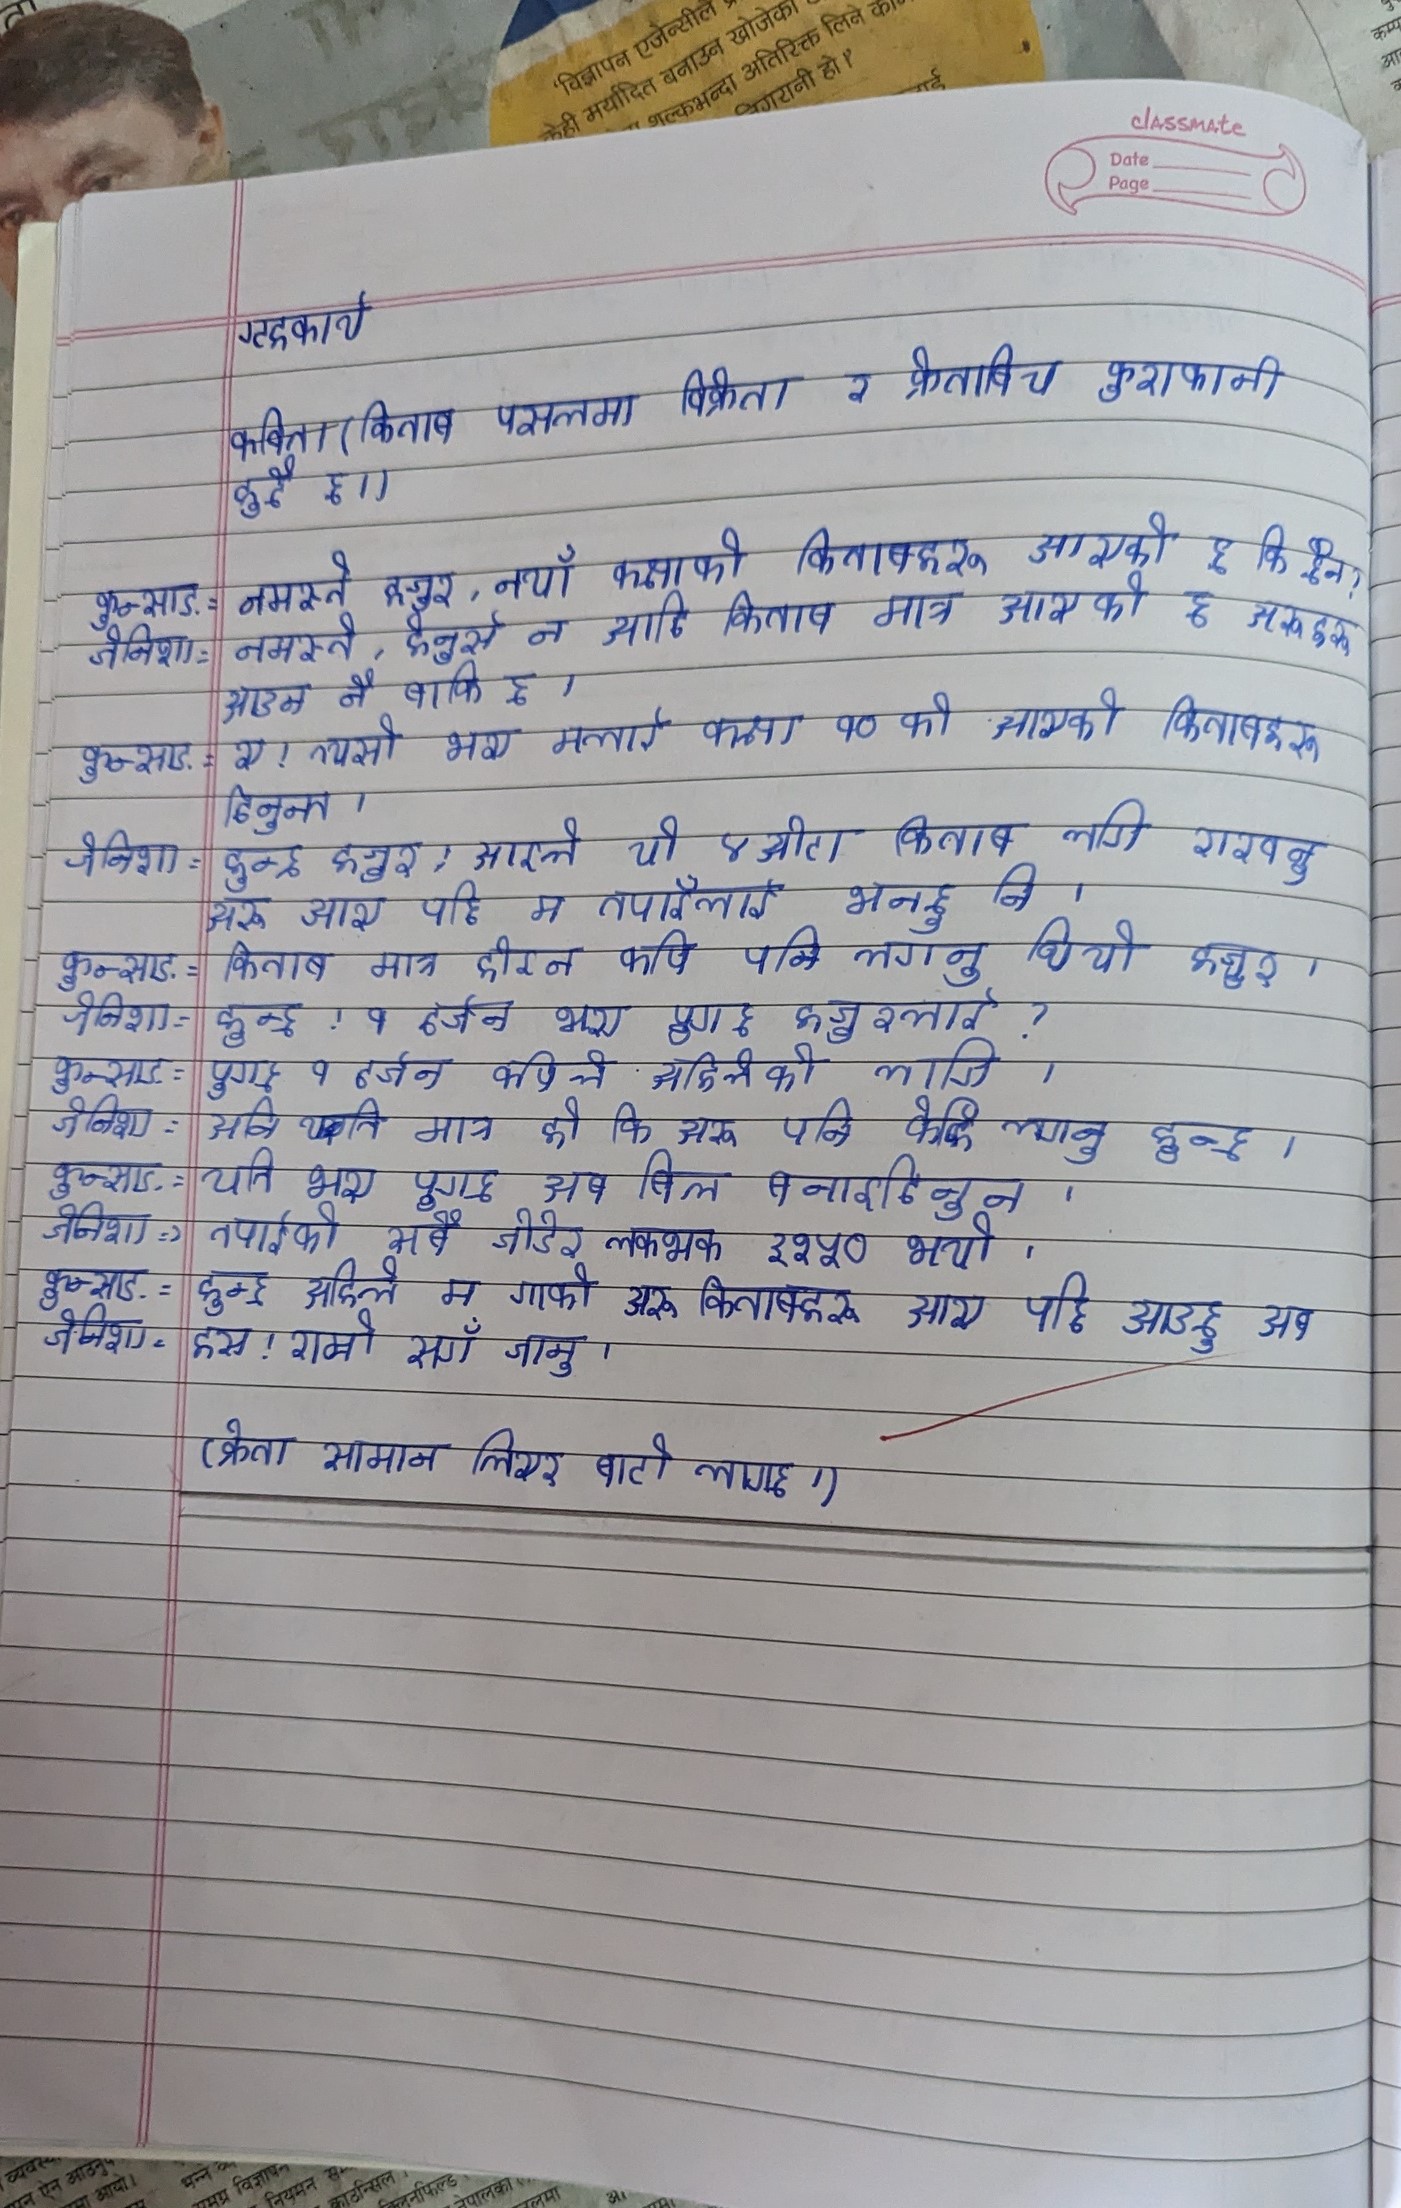 'विज्ञापन एजेन्सीले
केही मर्यादित बनाउन खोजेका
शुल्कभन्दा अतिरिक्त लिने
निगरानी हो।'
classmate
Date
Page
गृहकार्य
कविता (किताब पसलमा विक्रेता र क्रेताबिच कुराकानी
हुदै छ।)
कुन्साङ = नमस्ते हजुर, नयाँ कक्षाको किताबहरू आएको छ कि छैन?
जेनिशा = नमस्ते, हेनुर्स न आदि किताब मात्र आएको छ अरूहरू
आउन नै बाकि छ ।
कुन्साङ = ए! त्यसो भए मलाई कक्षा १० को आएको किताबहरू
दिनुन्न ।
जेनिशा = हुन्छ हजुर! आइले यो ४ओटा किताब लगि राख्नु
अरू आए पछि म तपाईँलाई भन्छु नि ।
कुन्साङ = किताब मात्र होइन कपि पनि लगनु थियो हजुर ।
जेनिशा = हुन्छ ! १ दर्जन भए पुगछ हजुरलाई ?
कुन्साङ = पुगछ १ दर्जन कपिले अहिलेको लागि ।
जेनिशा = अनि यति मात्र हो कि अरू पनि केहि लानु हुन्छ ।
कुन्साङ = यति भए पुगछ अब बिल बनाइदिनुन ।
जेनिशा => तपाईको सबै जोडेर लकभक ३२५० भयो ।
कुन्साङ = हुन्छ अहिले म गाको अरू किताबहरू आए पछि आउछु अब
जेनिशा = हस! राम्रो सगँ जानु ।
(क्रेता सामान लिएर बाटो लाग्छ।)